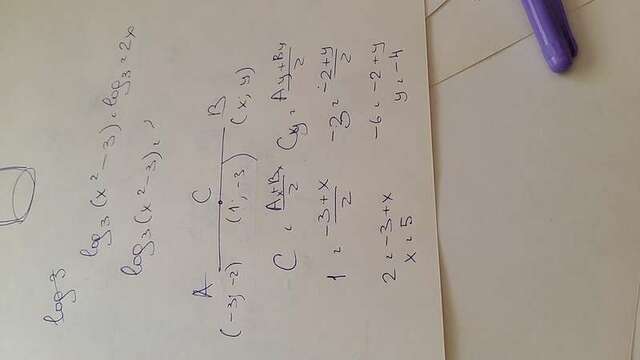 log 3
log₃(x² - 3) = log₃ = 2x
log₃(x² - 3) =
A C B
(-3; -2) (1; -3) (x, y)
C = Ax+Bx/2 Cy = Ay+By/2
1 = -3+x/2 -3 = -2+y/2
2 = -3+x -6 = -2+y
x = 5 y = -4